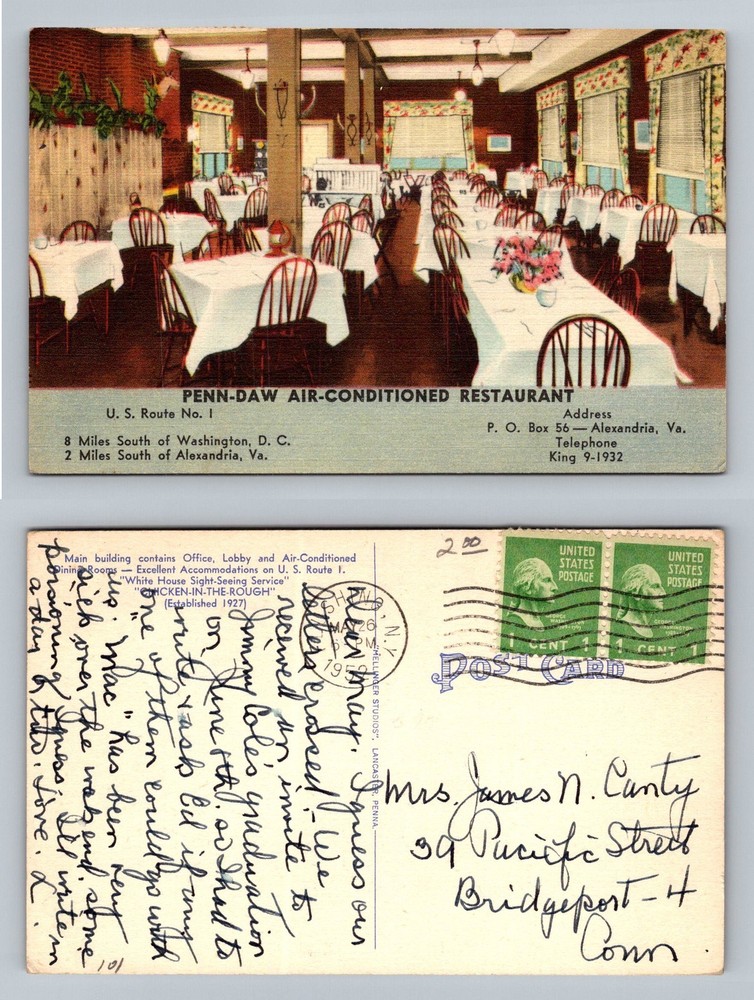 PENN-DAW AIR-CONDITIONED RESTAURANT
U. S. Route No. 1
8 Miles South of Washington, D. C.
2 Miles South of Alexandria, Va.
Address
P. O. Box 56 — Alexandria, Va.
Telephone
King 9-1932
Main building contains Office, Lobby and Air-Conditioned
Dining Rooms — Excellent Accommodations on U. S. Route 1.
"White House Sight-Seeing Service"
"CHICKEN-IN-THE-ROUGH"
(Established 1927)
Dear May. I guess our
letters crossed. We
received an invite to
Jimmy Cole's graduation
on June th. so I had to
write & ask Ed if any
one of them could go with
us. "Mac" has been very
sick over the weekend. some
poisoning I guess. I'll write in
a day or two. Love. L.
101
"MELLINGER STUDIOS", LANCASTER, PENNA.
2 00
N. Y.
MAY 26
PM
195
UNITED
STATES
POSTAGE
GEORGE
WASHINGTON
1 CENT 1
UNITED
STATES
POSTAGE
GEORGE
WASHINGTON
1 CENT 1
POST CARD
Mrs. James N. Canty
39 Pacific Street
Bridgeport-4
Conn